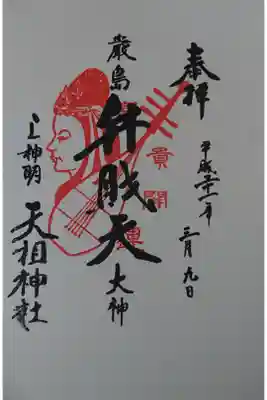 奉拝
平成二十一年
三月九日
厳島
弁財天
大神
開運
上神明
天祖神社